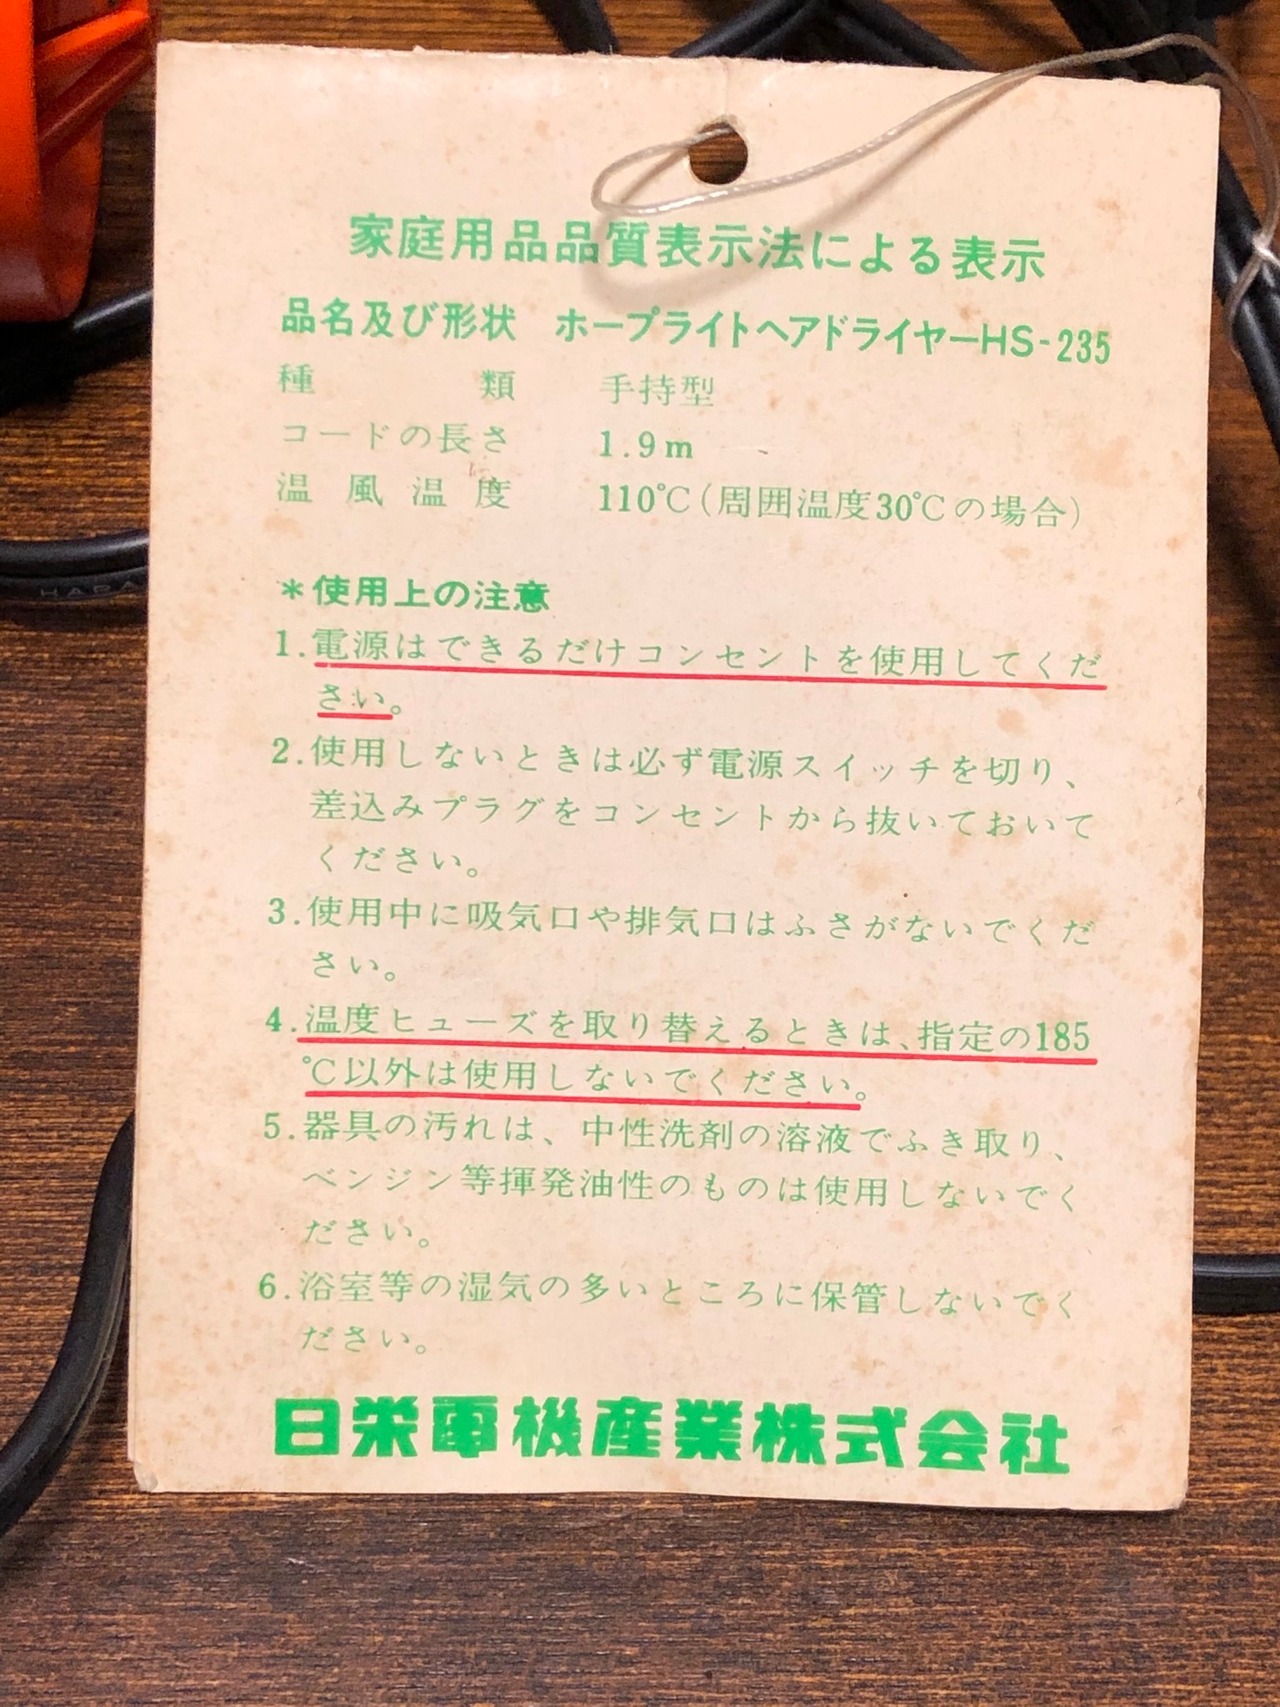 家庭用品品質表示法による表示
品名及び形状 ホープライトヘアドライヤーHS-235
種類 手持型
コードの長さ 1.9m
温風温度 110℃(周囲温度30℃の場合)
*使用上の注意
1.電源はできるだけコンセントを使用してくだ
さい。
2.使用しないときは必ず電源スイッチを切り、
差込みプラグをコンセントから抜いておいて
ください。
3.使用中に吸気口や排気口はふさがないでくだ
さい。
4.温度ヒューズを取り替えるときは、指定の185
℃以外は使用しないでください。
5.器具の汚れは、中性洗剤の溶液でふき取り、
ベンジン等揮発油性のものは使用しないでく
ださい。
6.浴室等の湿気の多いところに保管しないでく
ださい。
日栄電機産業株式会社